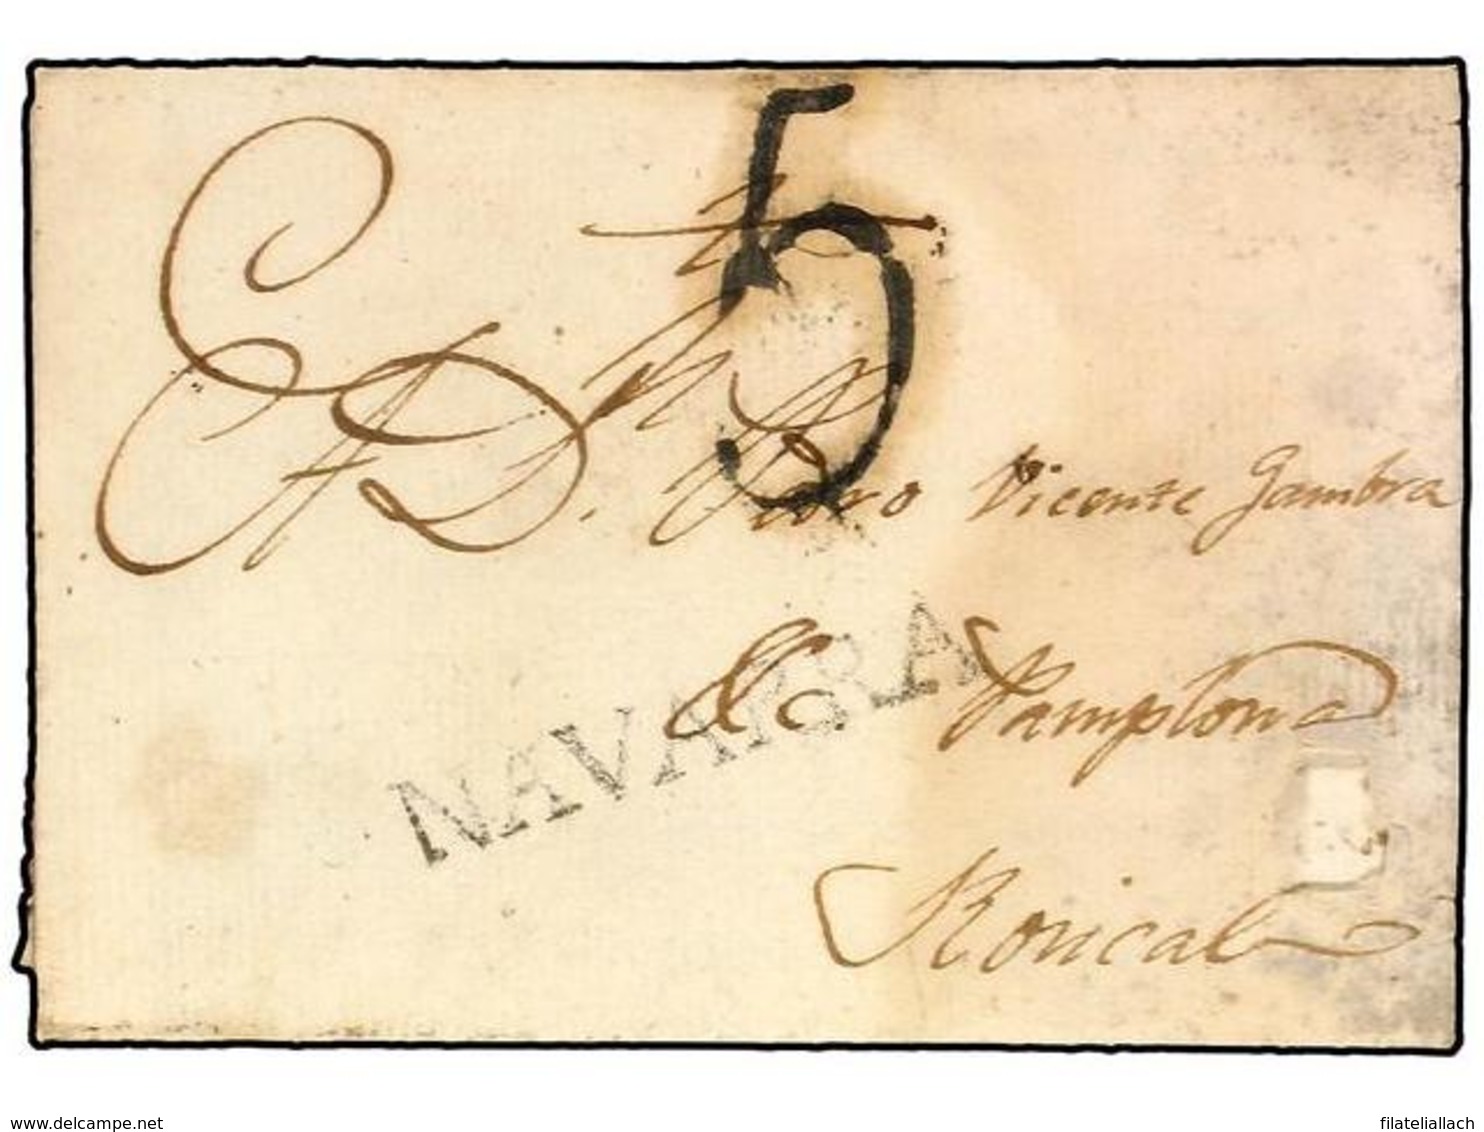 5
A D.ⁿ Pedro Vicente Gambra
NAVARRA
Pamplona
Roncal
www.delcampe.net
filateliallach